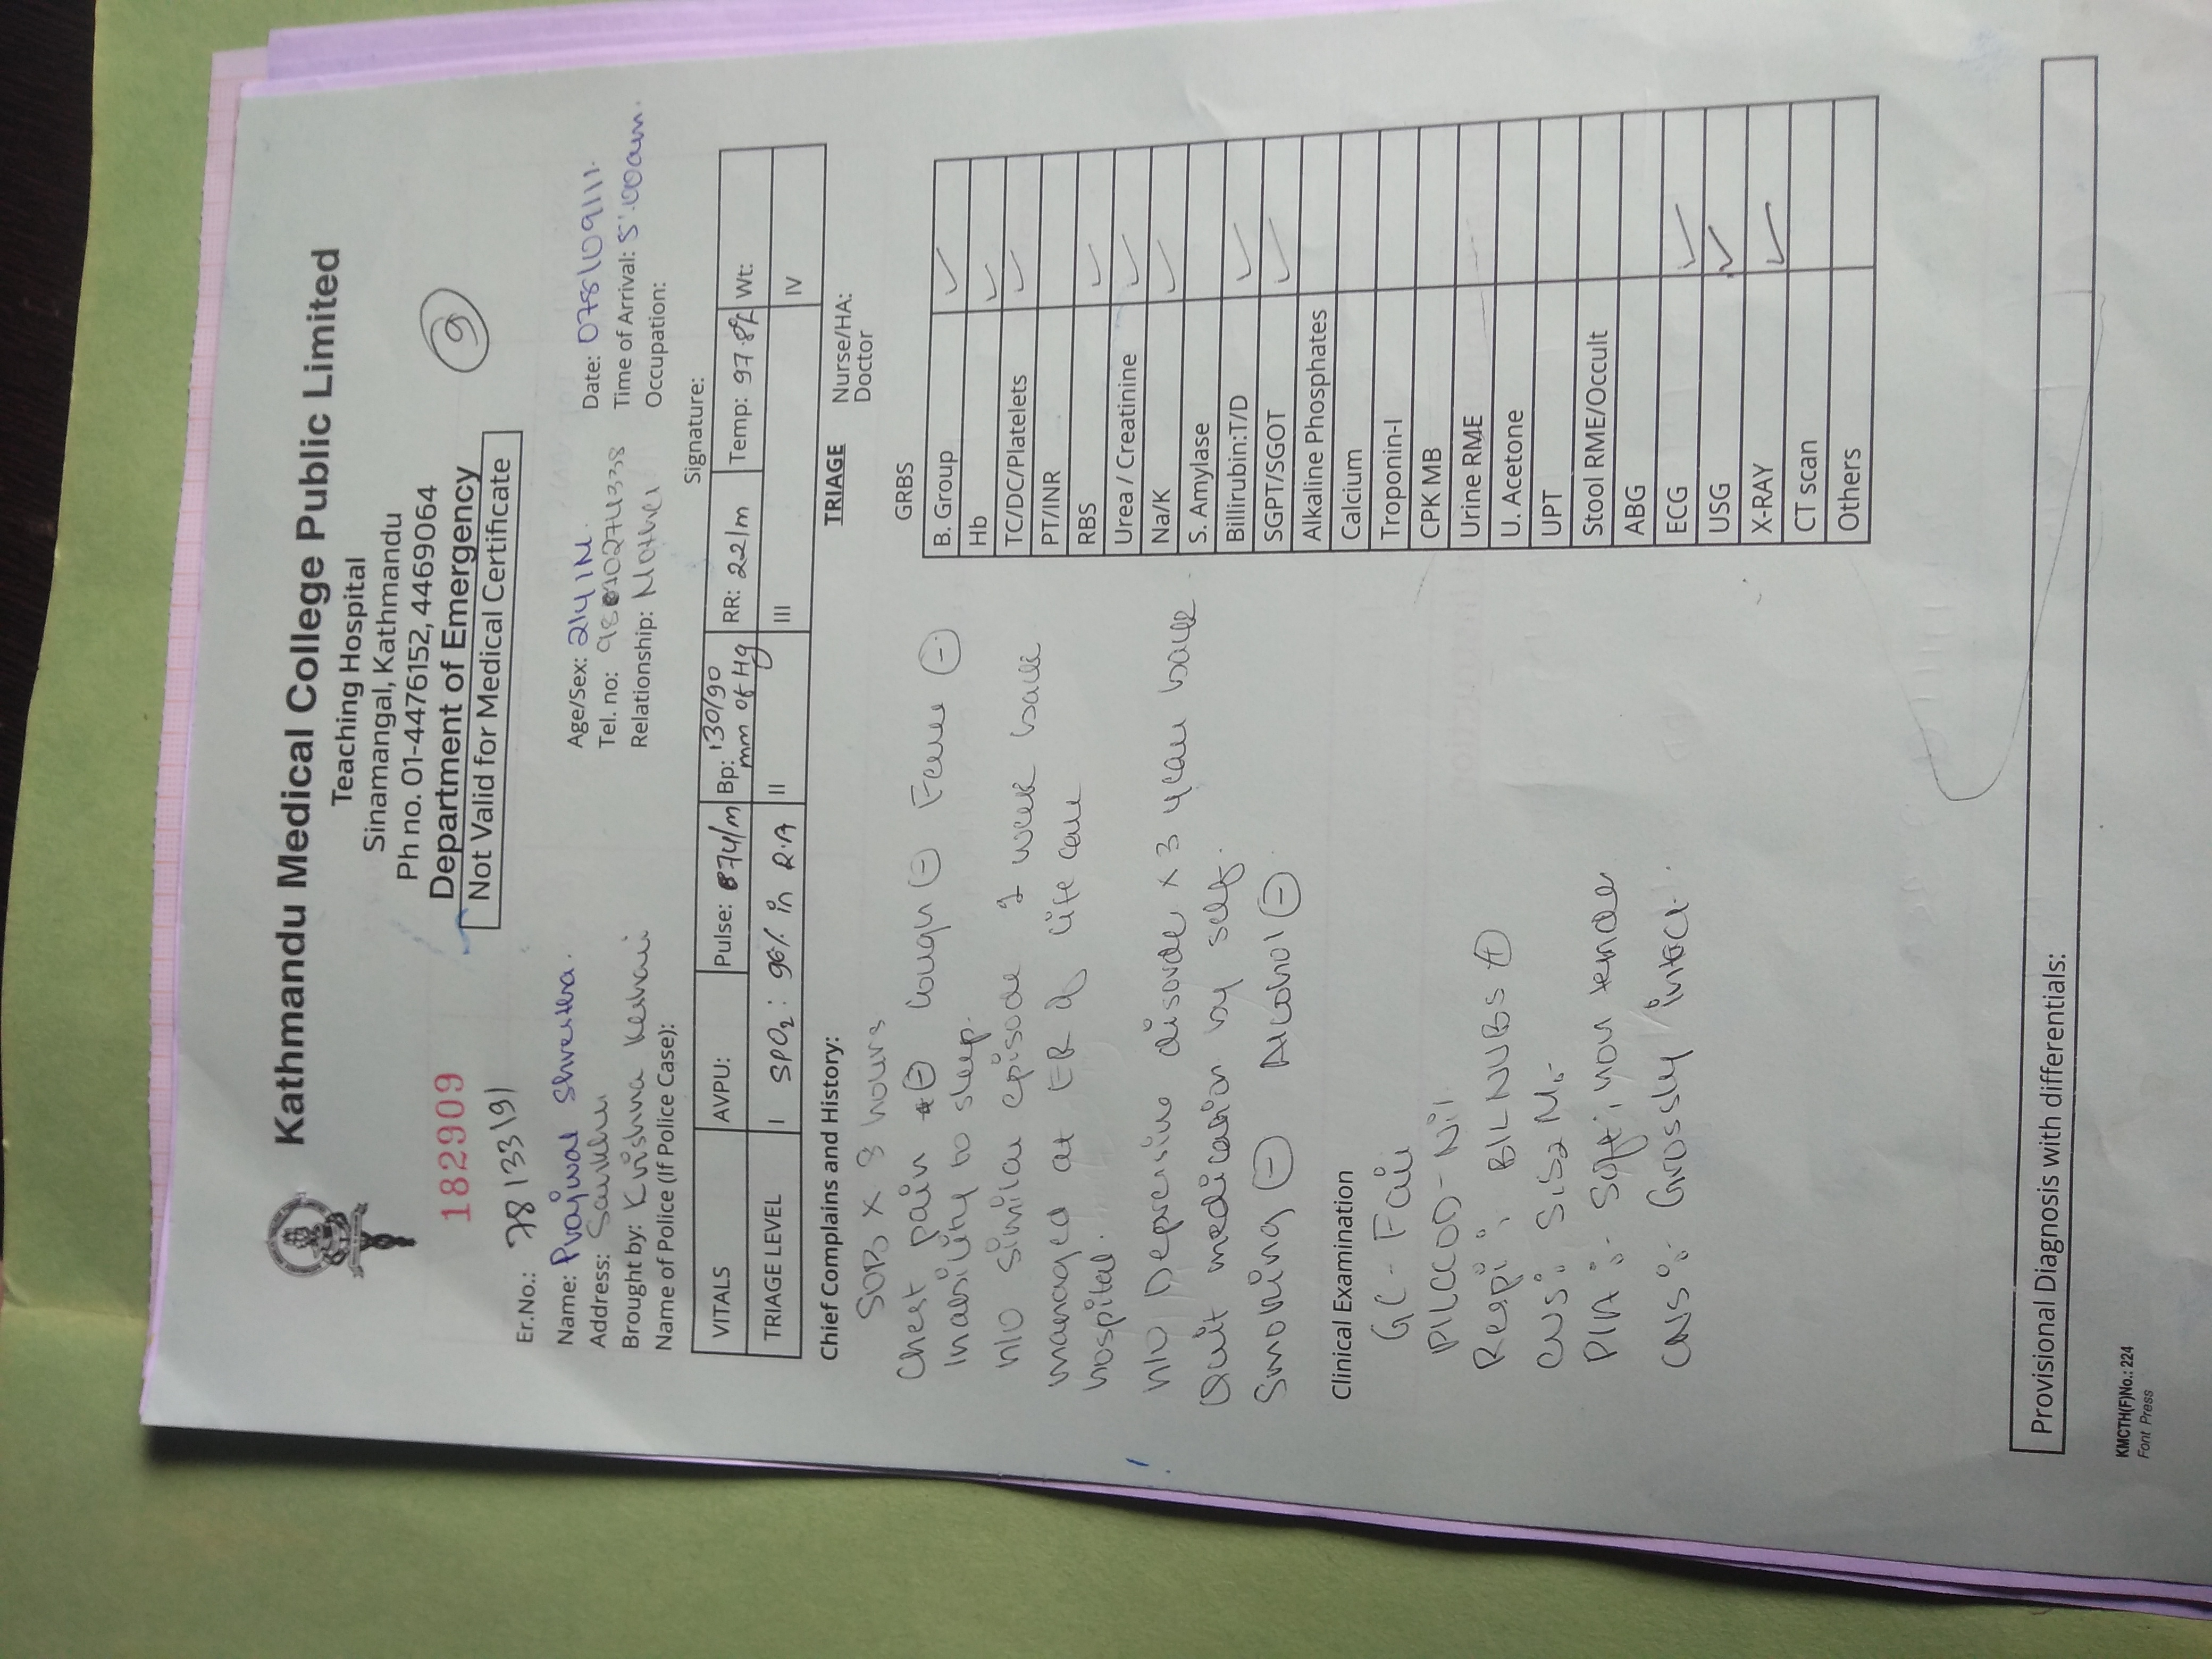 Kathmandu Medical College Public Limited
Teaching Hospital
Sinamangal, Kathmandu
Ph no. 01-4476152, 4469064
Department of Emergency
Not Valid for Medical Certificate
182909
9
Er.No.: 7813319
Name: Prajwal Shrestha. Age/Sex: 21Y/M. Date: 078/09/11.
Address: Tel. no: Time of Arrival: 5:00am.
Brought by: Krishna Keshari Relationship: Mother Occupation:
Name of Police (If Police Case): Signature:
VITALS AVPU: Pulse: 87b/m Bp: 130/90 mm of Hg RR: 22/m Temp: 97.8f Wt:
TRIAGE LEVEL I SPO2: 96% in R.A II III IV
Chief Complains and History: TRIAGE Nurse/HA:
Doctor
SOB x 3 hours
Chest pain ⊕ cough ⊖ Fever ⊖
Inability to sleep.
h/o similar episode 1 week back
managed at ER of life care
hospital.
h/o Depressive disorder x 3 year back.
Quit medication by self.
Smoking ⊖ Alcohol ⊖.
Clinical Examination
GC - Fair
PILCCOD - Nil
Resp: B/L NVBS ⊕
CVS: S1S2 M0
P/A :- Soft, non tender
CNS :- Grossly intact.
GRBS
B. Group ✓
Hb ✓
TC/DC/Platelets ✓
PT/INR
RBS ✓
Urea / Creatinine ✓
Na/K ✓
S. Amylase
Billirubin:T/D ✓
SGPT/SGOT ✓
Alkaline Phosphates
Calcium
Troponin-I
CPK MB
Urine RME
U. Acetone
UPT
Stool RME/Occult
ABG
ECG ✓
USG ✓
X-RAY ✓
CT scan
Others
Provisional Diagnosis with differentials:
KMCTH(F)No.: 224
Font Press